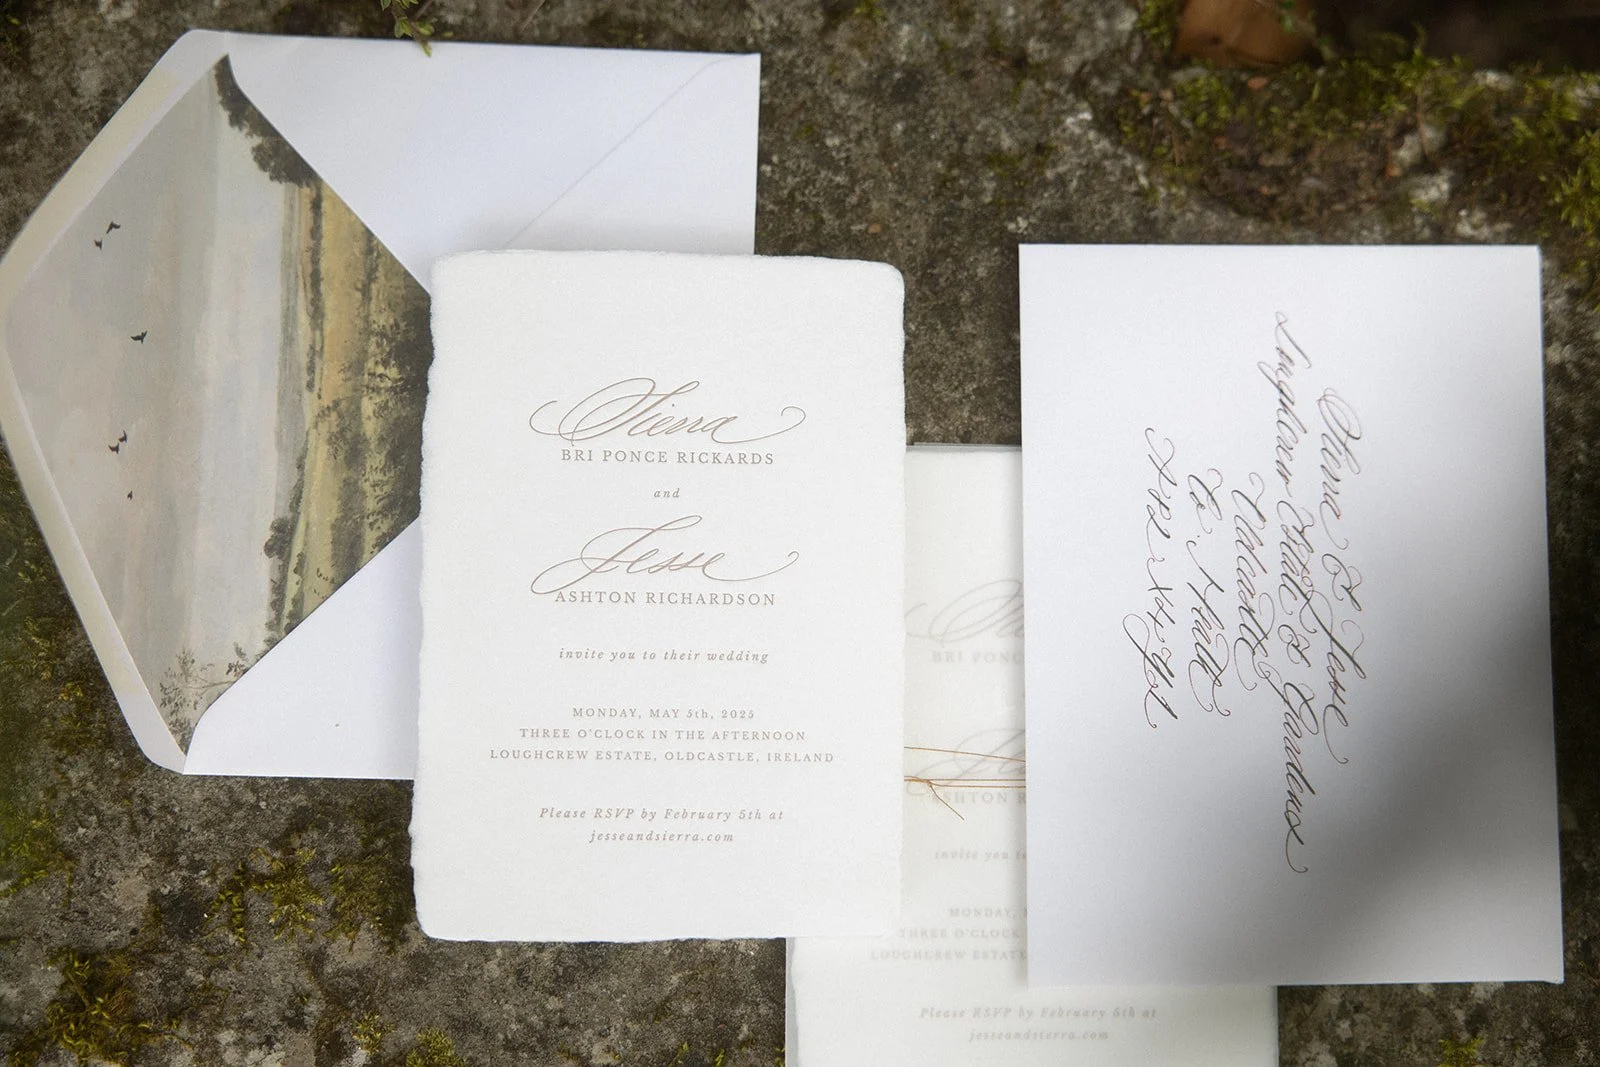 Sierra
BRI PONCE RICKARDS
and
Jesse
ASHTON RICHARDSON
invite you to their wedding
MONDAY, MAY 5th, 2025
THREE O'CLOCK IN THE AFTERNOON
LOUGHCREW ESTATE, OLDCASTLE, IRELAND
Please RSVP by February 5th at
jesseandsierra.com
BRI PONC
ASHTON R
invite you t
MONDAY,
THREE O'CLOCK
LOUGHCREW ESTATE
Please RSVP by February 5th at
jesseandsierra.com
Sierra & Jesse
Loughcrew Estate & Gardens
Oldcastle
Co. Meath